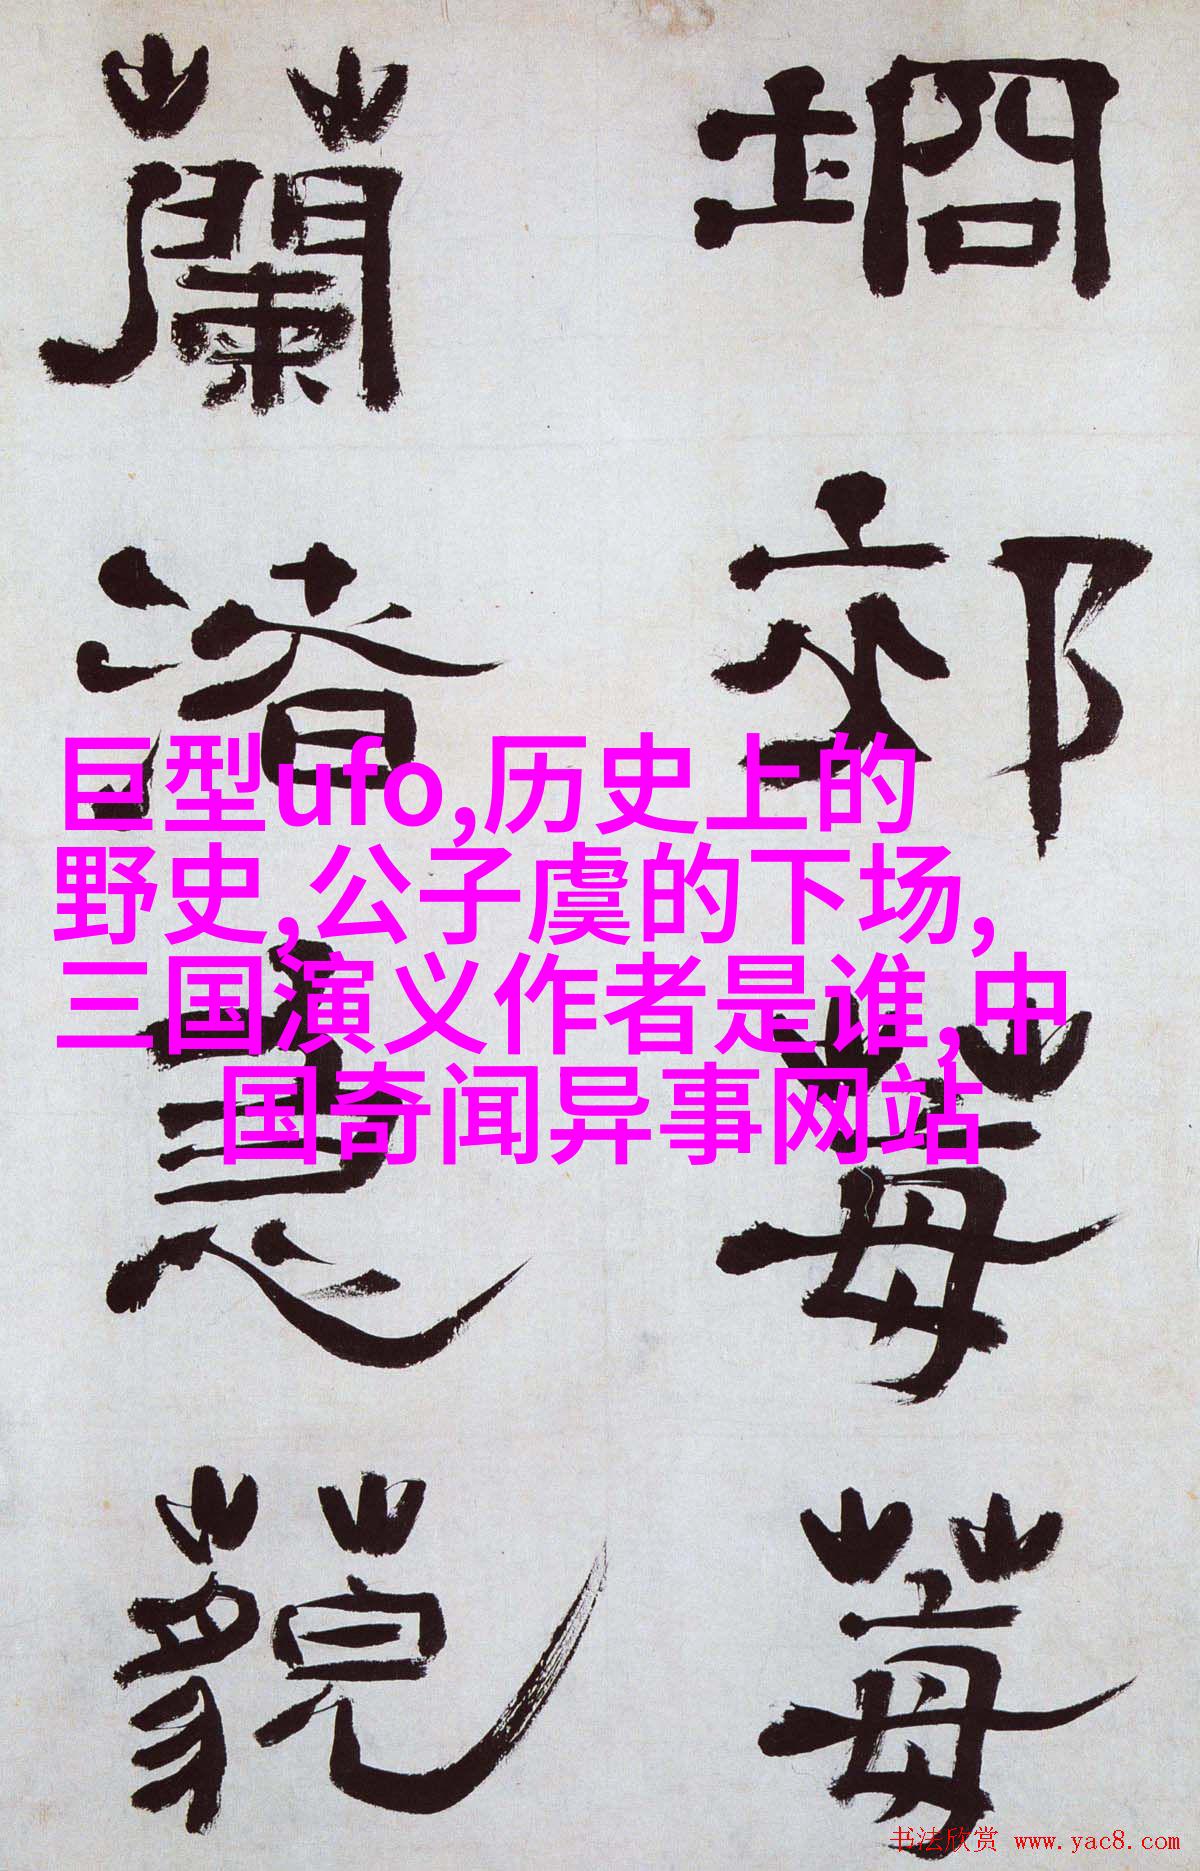 坰郊莓莓
蘭渚藐
巨型ufo,历史上的
野史,公子虞的下场,
三国演义作者是谁,中
国奇闻异事网站
书法欣赏 www.yac8.com